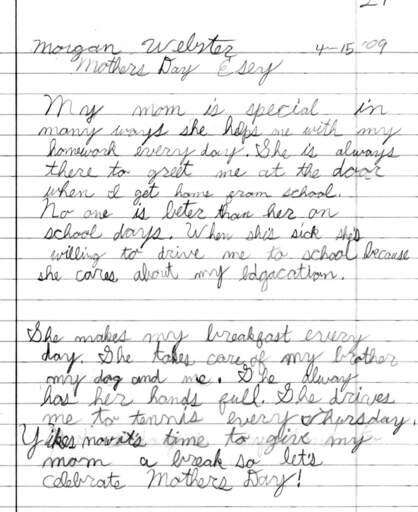 Morgan Webster 4-15-09
Mothers Day Esey
My mom is special in
many ways she helps me with my
homework every day. She is always
there to greet me at the door
when I get home from school.
No one is beter than her on
school days. When shs sick she's
willing to drive me to school because
she cares about my edgacation.
She makes my breakfast every
day. She takes care of my brother
my dog and me. She alway
has her hands full. She drives
me to tennis every Thursday.
Yikes now it's time to give my
mom a break so let's
celebrate Mothers Day!